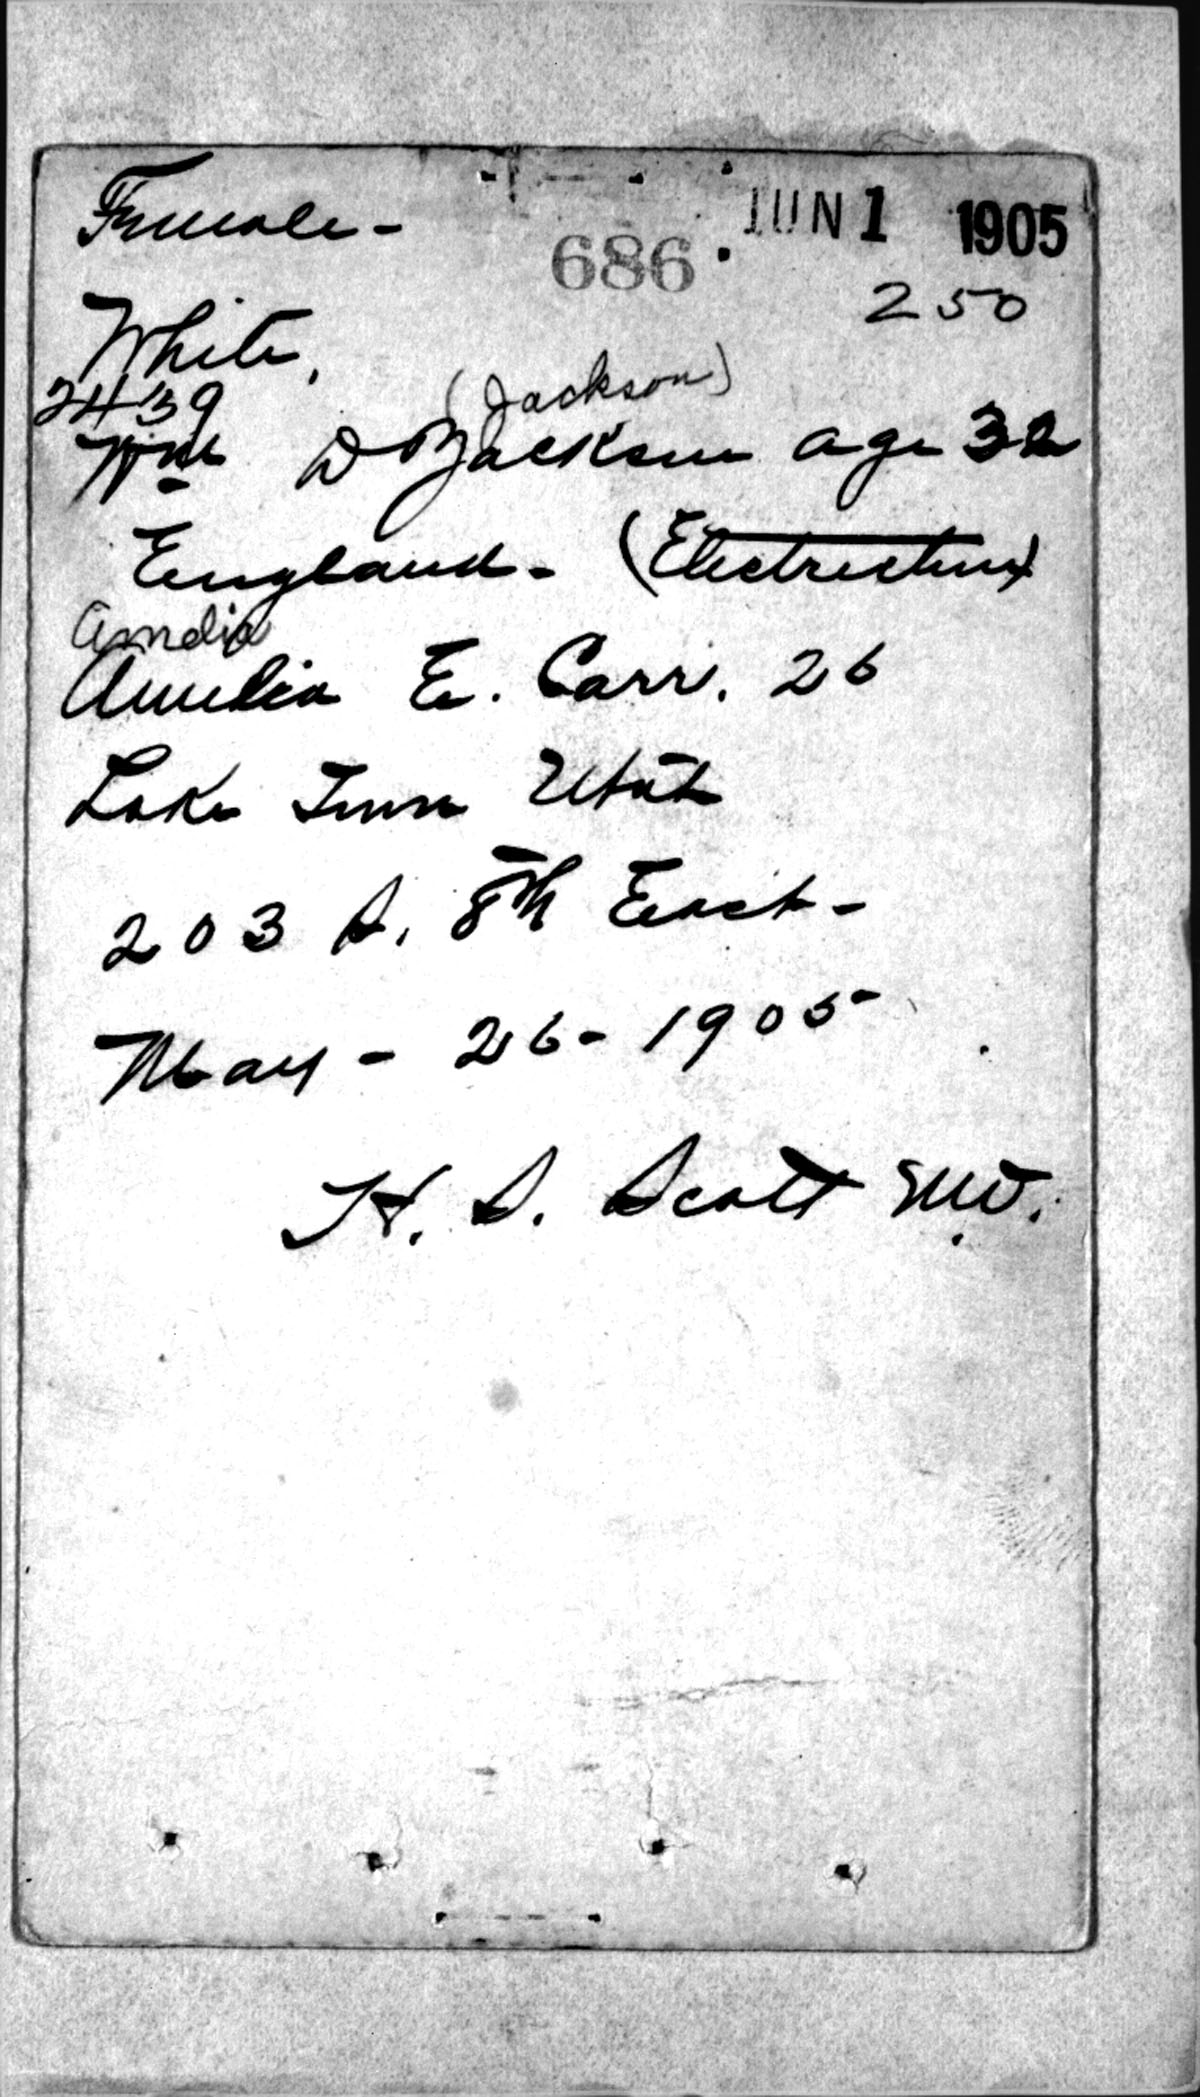 Female - 686 JUN 1 1905
250
White,
2439 (Jackson)
Wm D Jackson age 32
England - (Electrician)
Amelia
Amelia E. Carr. 26
Lake Town Utah
203 S. 8th East -
May - 26 - 1905
H. S. Scott M.D.